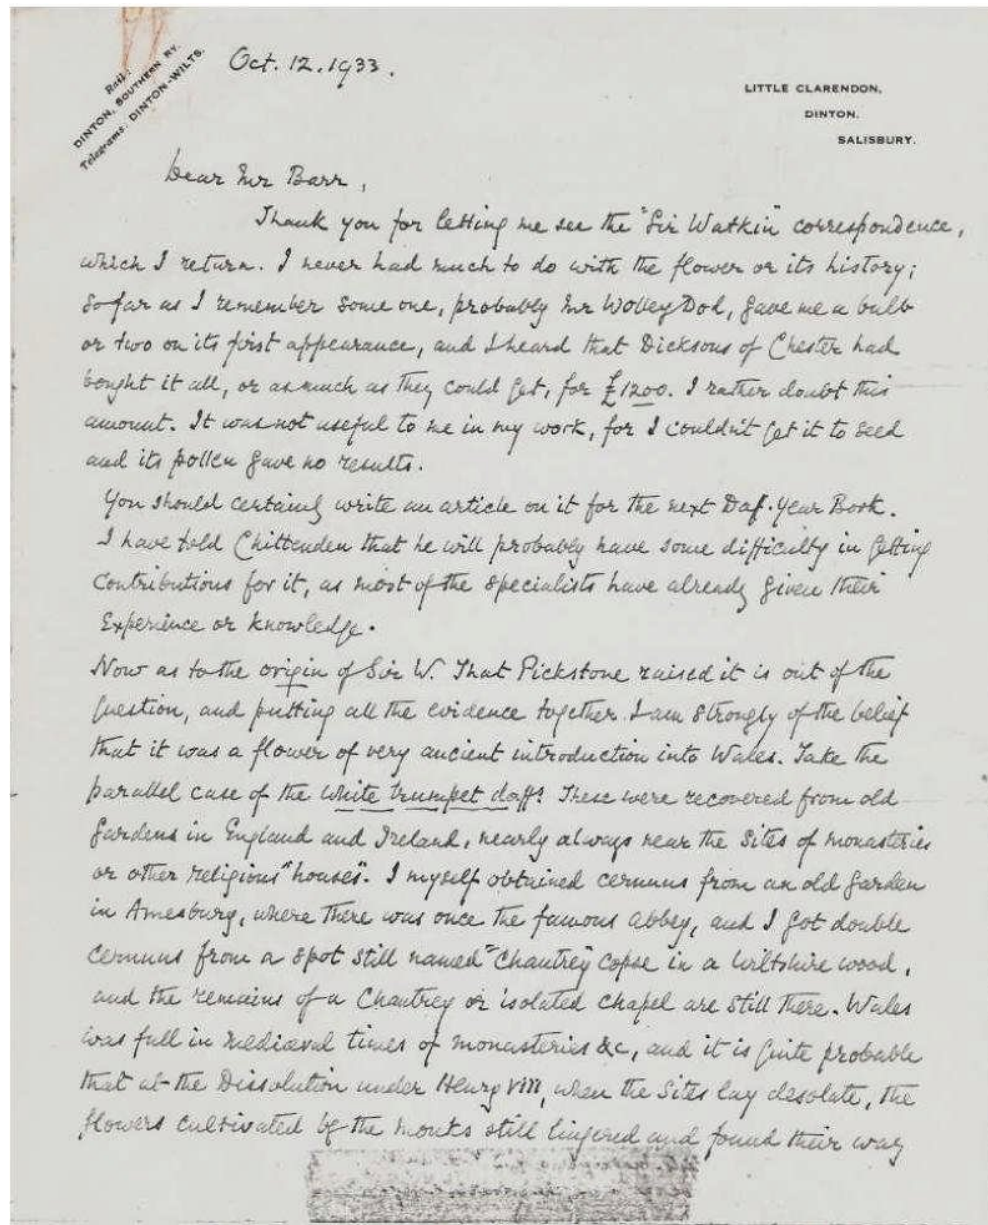 Rail:
DINTON, SOUTHERN RY.
Telegrams: DINTON-WILTS.
Oct. 12. 1933.
LITTLE CLARENDON,
DINTON,
SALISBURY.
Dear Mr Barr,
Thank you for letting me see the "Sir Watkin" correspondence,
which I return. I never had much to do with the flower or its history;
so far as I remember some one, probably Mr Wolley Dod, gave me a bulb
or two on its first appearance, and I heard that Dicksons of Chester had
bought it all, or as much as they could get, for £1200. I rather doubt this
amount. It was not useful to me in my work, for I couldn't get it to seed
and its pollen gave no results.
You should certainly write an article on it for the next Daf. Year Book.
I have told Chittenden that he will probably have some difficulty in getting
contributions for it, as most of the specialists have already given their
experience or knowledge.
Now as to the origin of Sir W. That Pickstone raised it is out of the
question, and putting all the evidence together I am strongly of the belief
that it was a flower of very ancient introduction into Wales. Take the
parallel case of the white trumpet daffs. These were recovered from old
gardens in England and Ireland, nearly always near the sites of monasteries
or other religious "houses". I myself obtained cernuus from an old garden
in Amesbury, where there was once the famous abbey, and I got double
cernuus from a spot still named "Chantrey" copse in a Wiltshire wood,
and the remains of a Chantrey or isolated chapel are still there. Wales
was full in mediæval times of monasteries &c, and it is quite probable
that at the Dissolution under Henry VIII, when the sites lay desolate, the
flowers cultivated by the monks still lingered and found their way